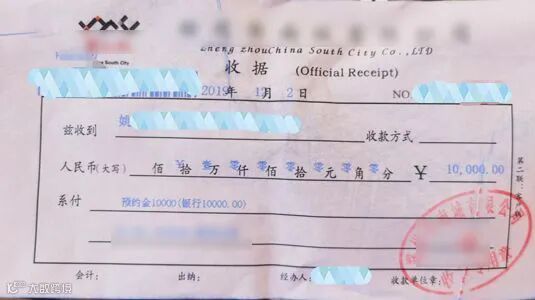 South City
Zheng zhouChina South City Co.,LTD
收据 (Official Receipt)
2019年 12月 2日 NO.
兹收到 姚 收款方式
人民币(大写) 佰 ¥ 拾 壹 万 零 仟 零 佰 零 拾 零 元 零 角 零 分 ¥ 10,000.00
系付 预约金10000(银行10000.00)
第二联:客
会计: 出纳: 经办人: 收款单位章:
大数跨境